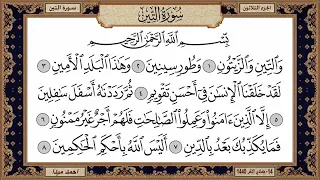 الجزء الثلاثون
سورة التين
سُورَةُ التِّينِ
بِسْمِ اللَّهِ الرَّحْمَٰنِ الرَّحِيمِ
وَالتِّينِ وَالزَّيْتُونِ ١ وَطُورِ سِينِينَ ٢ وَهَٰذَا الْبَلَدِ الْأَمِينِ ٣
لَقَدْ خَلَقْنَا الْإِنسَٰنَ فِي أَحْسَنِ تَقْوِيمٍ ٤ ثُمَّ رَدَدْنَٰهُ أَسْفَلَ سَٰفِلِينَ
٥ إِلَّا الَّذِينَ ءَامَنُوا وَعَمِلُوا الصَّٰلِحَٰتِ فَلَهُمْ أَجْرٌ غَيْرُ مَمْنُونٍ ٦
فَمَا يُكَذِّبُكَ بَعْدُ بِالدِّينِ ٧ أَلَيْسَ اللَّهُ بِأَحْكَمِ الْحَٰكِمِينَ ٨